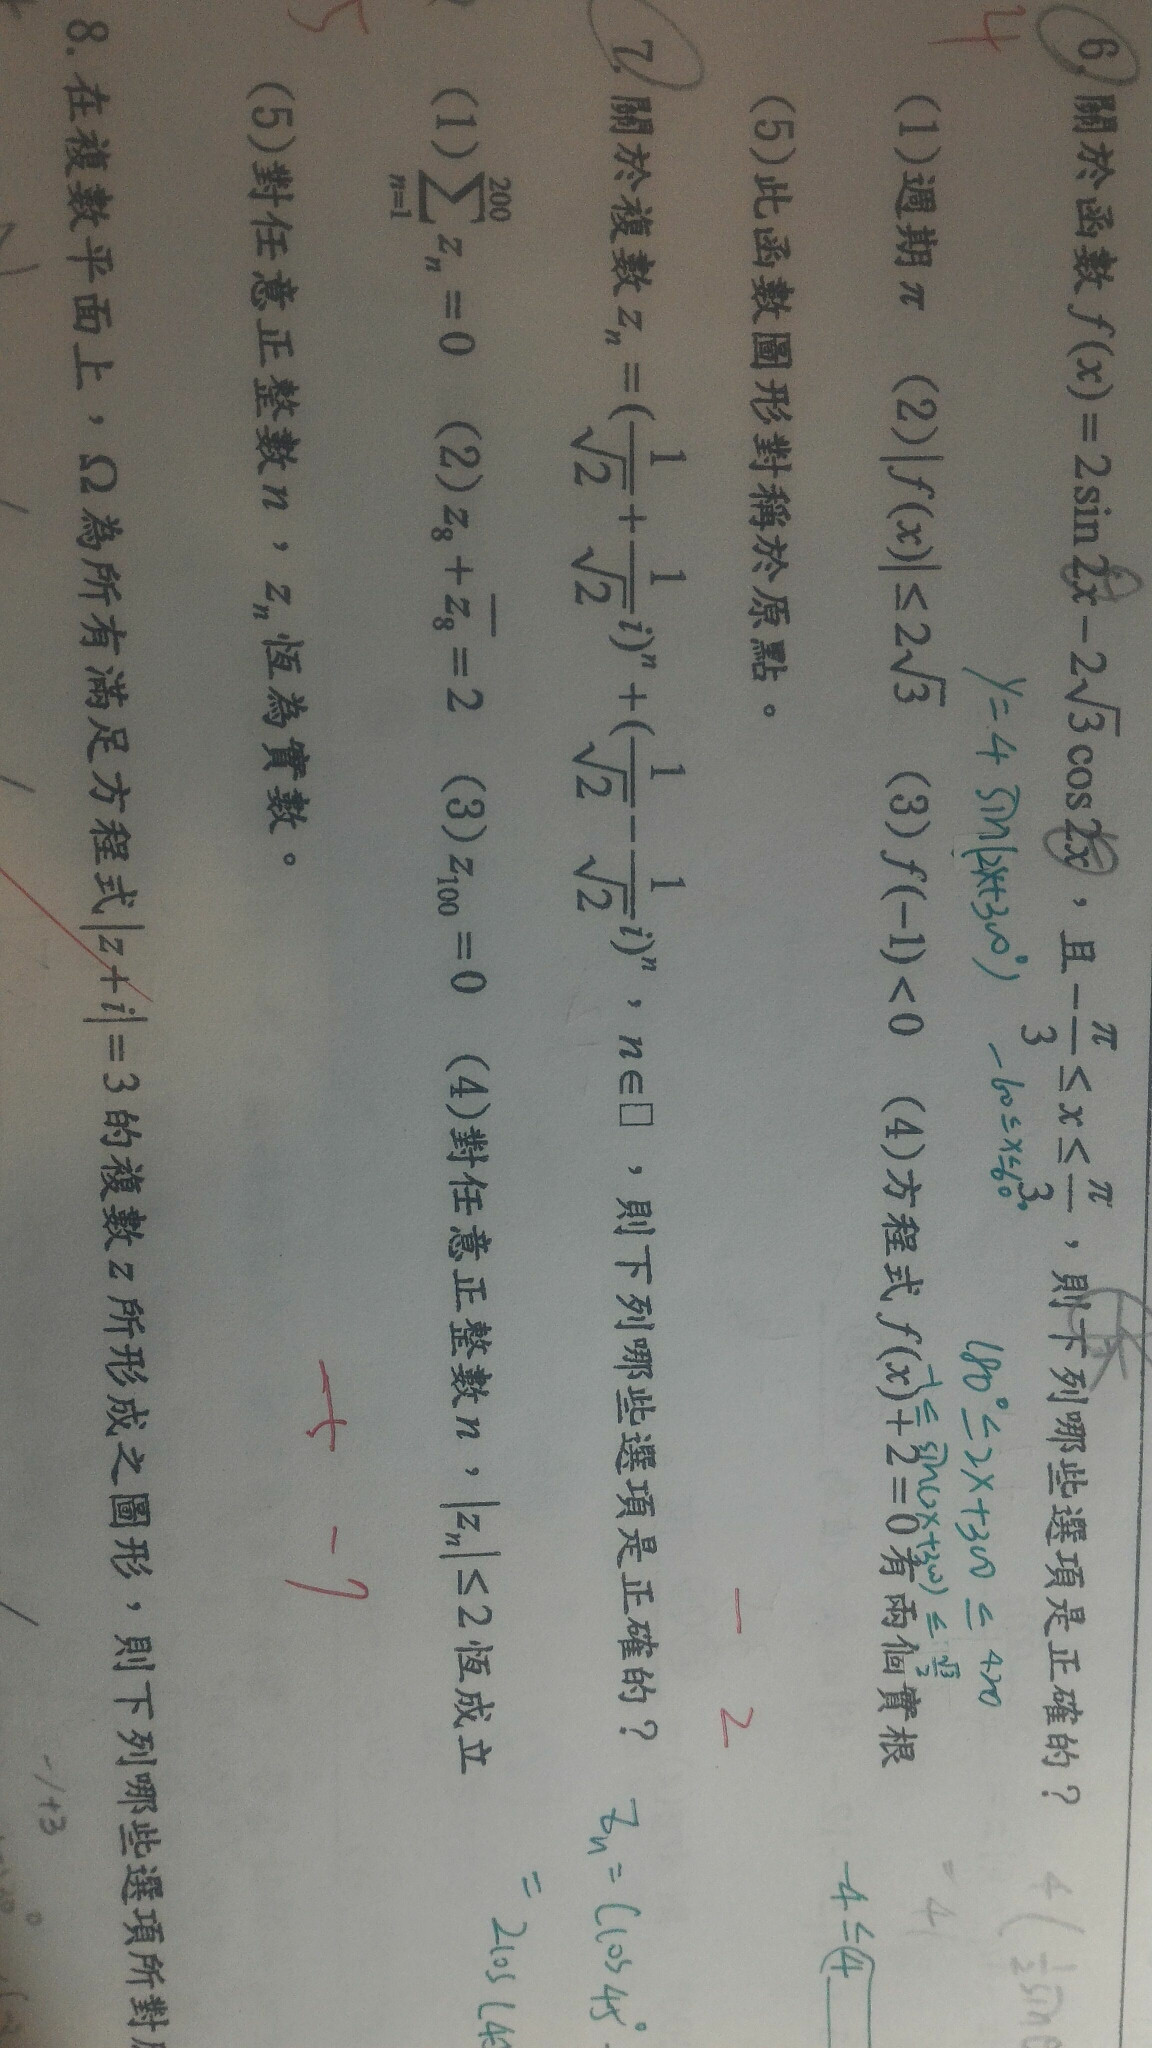 4
6. 關於函數 f(x)=2sin2x-2√3cos2x，且 -π/3≤x≤π/3，則下列哪些選項是正確的？
y=4 sin(2x+300°) -60≤x≤60° 180°≤2x+300≤420
-1≤sin(2x+300)≤√3/2
(1)週期π (2)|f(x)|≤2√3 (3)f(-1)<0 (4)方程式f(x)+2=0有兩個實根
-4≤(4
(5)此函數圖形對稱於原點。
-2
7. 關於複數 zₙ=(1/√2+1/√2 i)ⁿ+(1/√2-1/√2 i)ⁿ，n∈□，則下列哪些選項是正確的？
Zn=(cos45°
=2cos(45
5
(1)∑ₙ₌₁²⁰⁰ zₙ=0 (2)z₈+z̅₈=2 (3)z₁₀₀=0 (4)對任意正整數n，|zₙ|≤2恆成立
(5)對任意正整數n，zₙ恆為實數。
8. 在複數平面上，Ω為所有滿足方程式|z+i|=3的複數z所形成之圖形，則下列哪些選項所對
-1+3